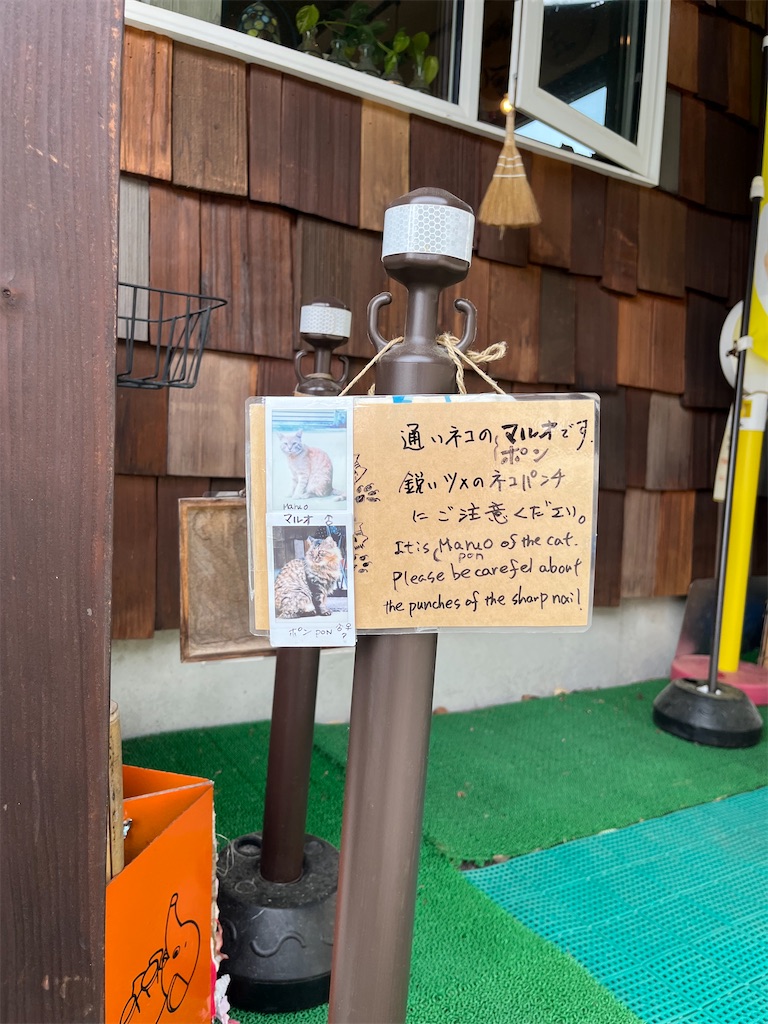 通いネコの マルオです。
ポン
鋭いツメのネコパンチ
にご注意ください。
It is Maruo of the cat.
pon
Please be carefel about
the punches of the sharp nail!
Maruo
マルオ ♂
ポン pon ♂♀
?